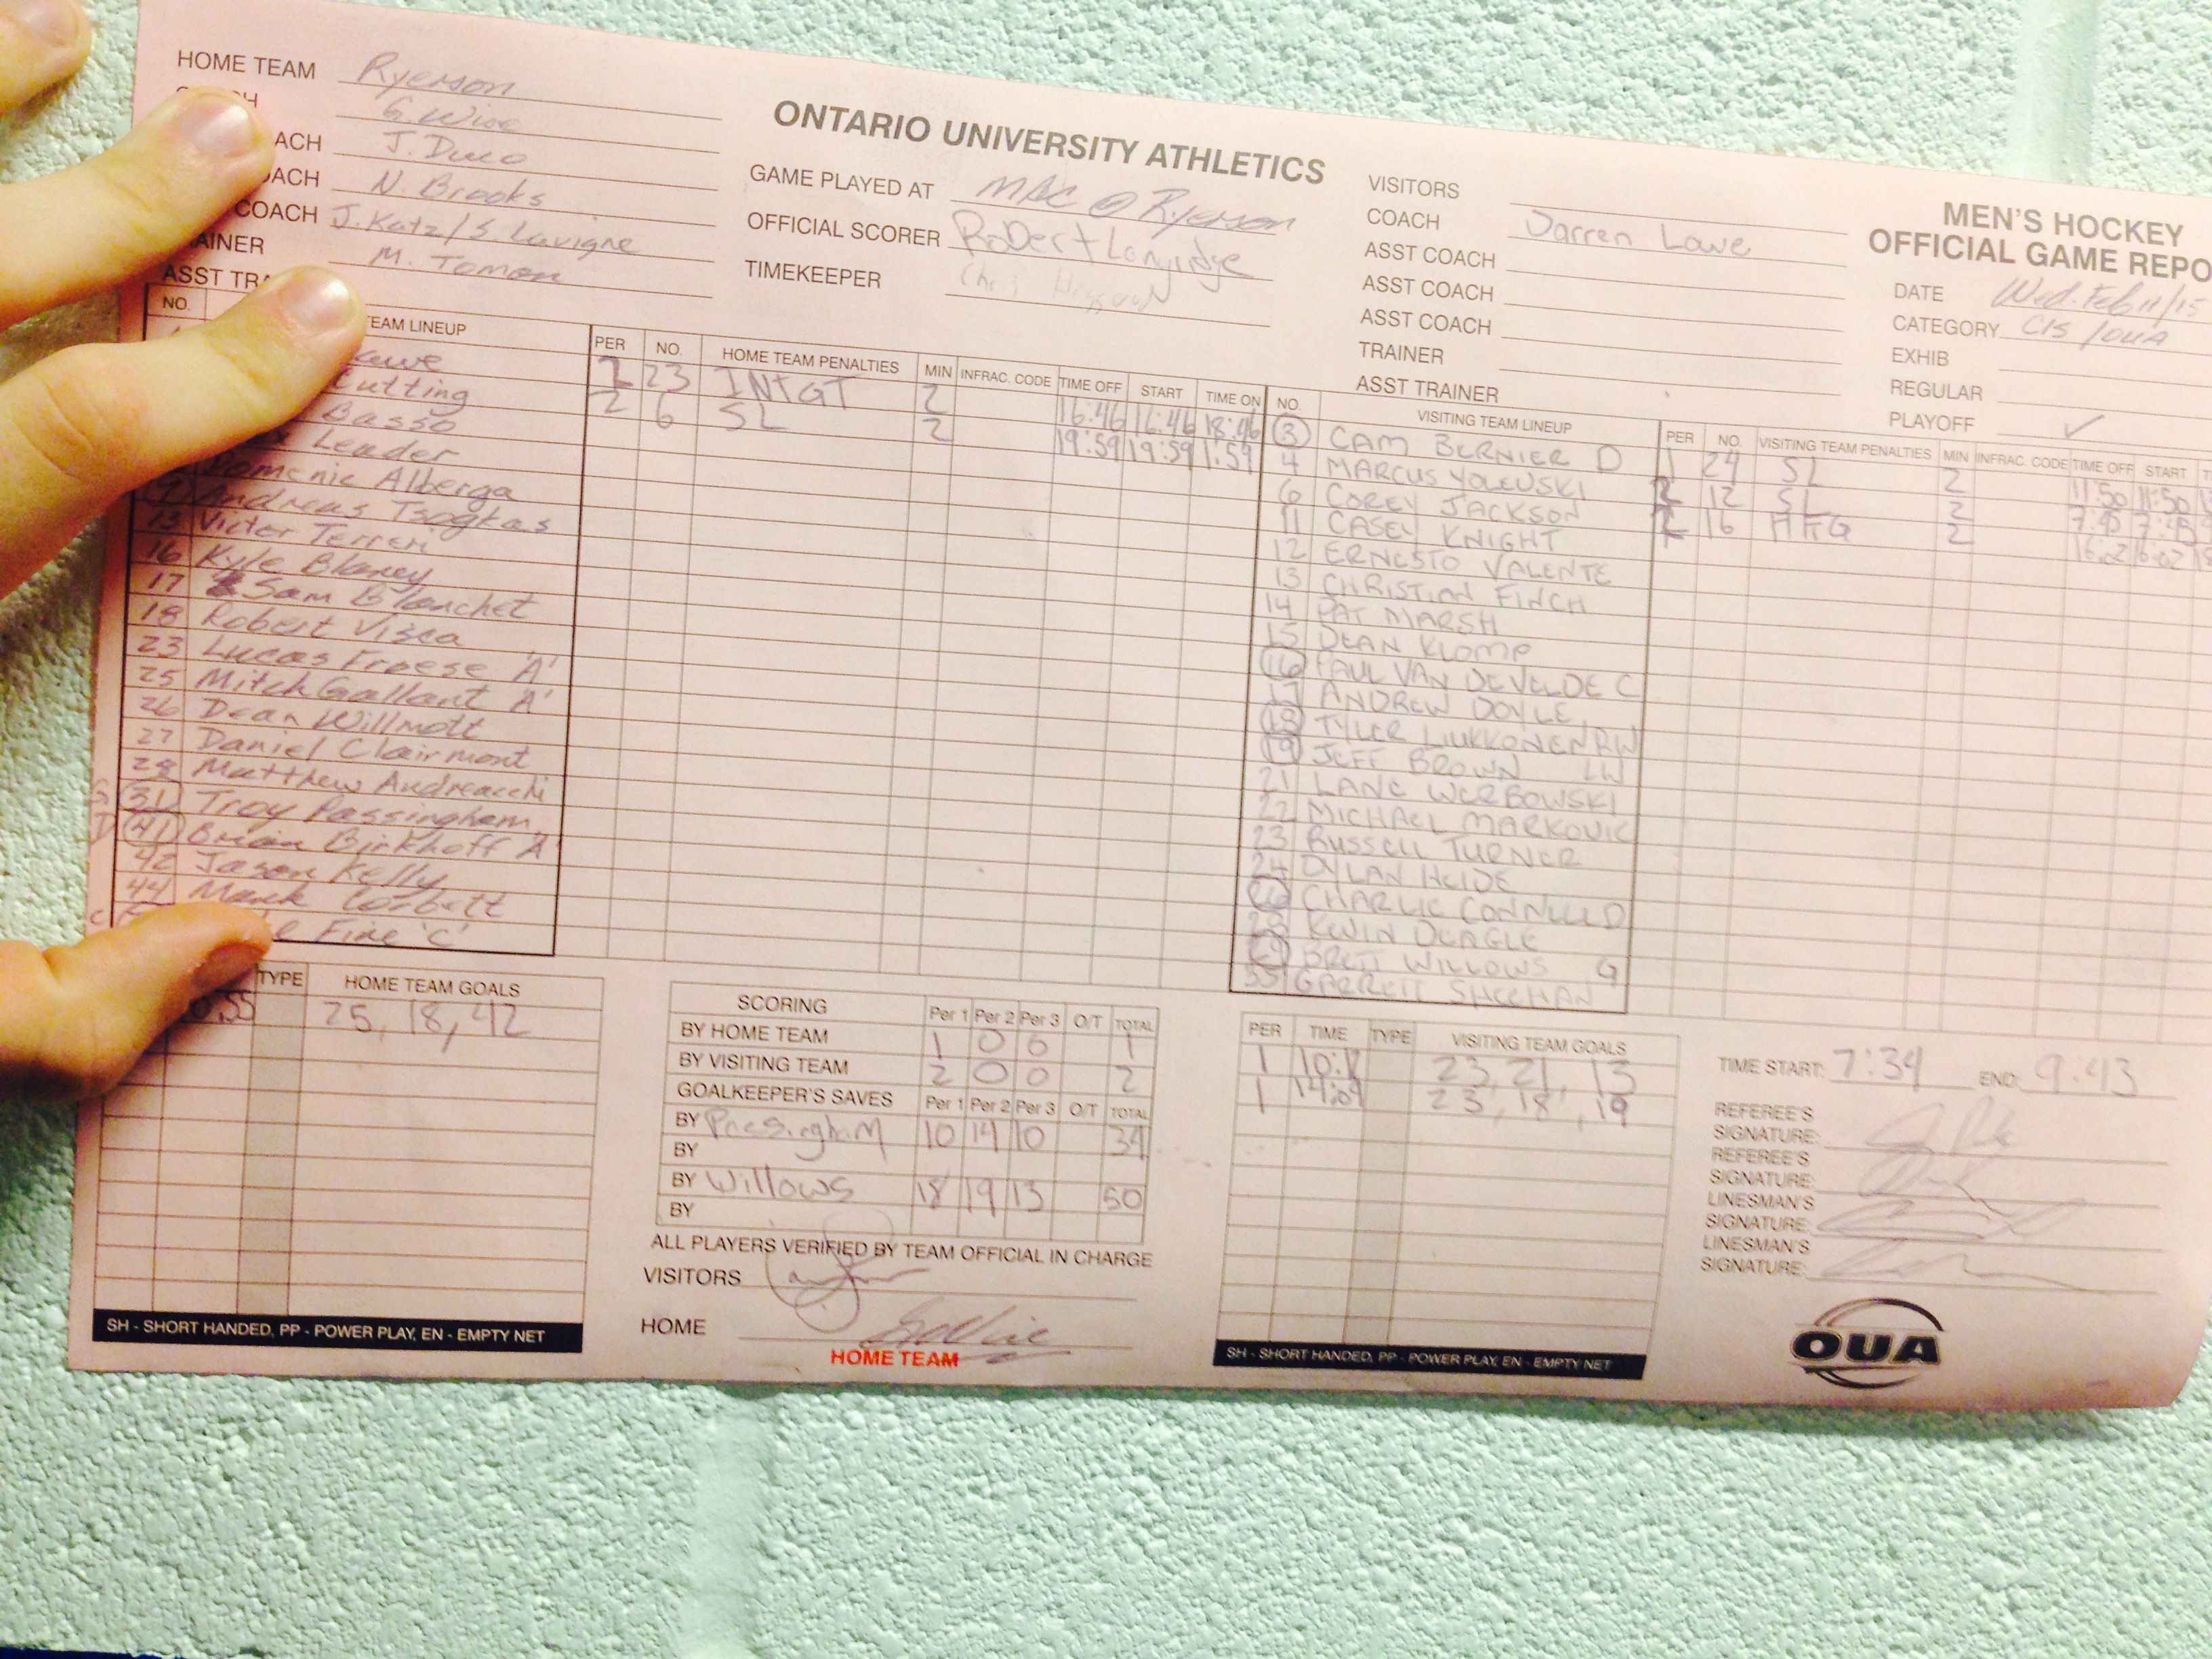 HOME TEAM Ryerson
G. Wise
ACH J. Duco
ACH N. Brooks
COACH J. Katz/S Lavigne
AINER M. Toman
ASST TRA
ONTARIO UNIVERSITY ATHLETICS
GAME PLAYED AT MAC @ Ryerson
OFFICIAL SCORER Robert Longridge
TIMEKEEPER Chris
VISITORS
COACH Darren Lowe
ASST COACH
ASST COACH
ASST COACH
TRAINER
ASST TRAINER
MEN'S HOCKEY
OFFICIAL GAME REPO
DATE Wed. Feb 11/15
CATEGORY CIS/OUA
EXHIB
REGULAR
PLAYOFF ✓
NO. TEAM LINEUP
Cutting
Basso
Leader
Domenic Alberga
9 Andreas Tsogkas
13 Victor Terreri
16 Kyle Blaney
17 Sam Blanchet
18 Robert Visca
23 Lucas Froese 'A'
25 Mitch Gallant 'A'
26 Dean Willmott
27 Daniel Clairmont
28 Matthew Andreacchi
G 31 Troy Passingham
D 41 Brian Birkhoff 'A'
42 Jason Kelly
44 Mark Corbett
C Fine 'C'
PER NO. HOME TEAM PENALTIES MIN INFRAC. CODE TIME OFF START TIME ON
23 INTGT 2 16:46 16:46 18:46
2 6 SL 2 19:59 19:59 1:59
NO. VISITING TEAM LINEUP
3 CAM BERNIER D
4 MARCUS YOLEVSKI
6 COREY JACKSON
11 CASEY KNIGHT
12 ERNESTO VALENTE
13 CHRISTIAN FINCH
14 PAT MARSH
15 DEAN KLOMP
16 PAUL VAN DE VELDE C
17 ANDREW DOYLE
18 TYLER LIUKKONEN RW
19 JEFF BROWN LW
21 LANE WERBOWSKI
22 MICHAEL MARKOVIC
23 RUSSELL TURNER
24 DYLAN HEIDE
26 CHARLIE CONNELL D
28 KEVIN DEAGLE
BRETT WILLOWS G
35 GARRETT SHEEHAN
PER NO. VISITING TEAM PENALTIES MIN INFRAC. CODE TIME OFF START
1 24 SL 2 11:50 11:50
2 12 SL 2
2 16 2
TYPE HOME TEAM GOALS
25, 18, 42
SH - SHORT HANDED, PP - POWER PLAY, EN - EMPTY NET
SCORING Per 1 Per 2 Per 3 O/T TOTAL
BY HOME TEAM 1 0 0 1
BY VISITING TEAM 2 0 0 2
GOALKEEPER'S SAVES Per 1 Per 2 Per 3 O/T TOTAL
BY Passingham 10 14 10 34
BY
BY Willows 18 19 13 50
BY
ALL PLAYERS VERIFIED BY TEAM OFFICIAL IN CHARGE
VISITORS
HOME
HOME TEAM
PER TIME TYPE VISITING TEAM GOALS
1 23, 21, 13
1 14:09 23, 18, 19
SH - SHORT HANDED, PP - POWER PLAY, EN - EMPTY NET
TIME START: 7:34 END: 9:43
REFEREE'S
SIGNATURE:
REFEREE'S
SIGNATURE:
LINESMAN'S
SIGNATURE:
LINESMAN'S
SIGNATURE:
OUA